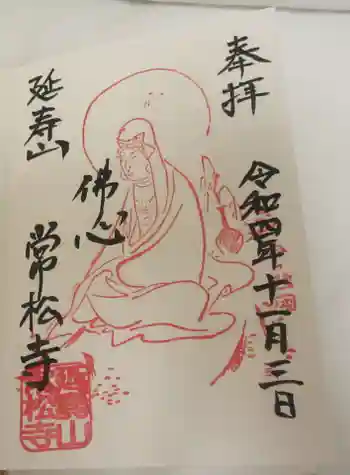 奉拝
令和四年十一月三日
佛心
延寿山
常松寺
延寿山
常松寺